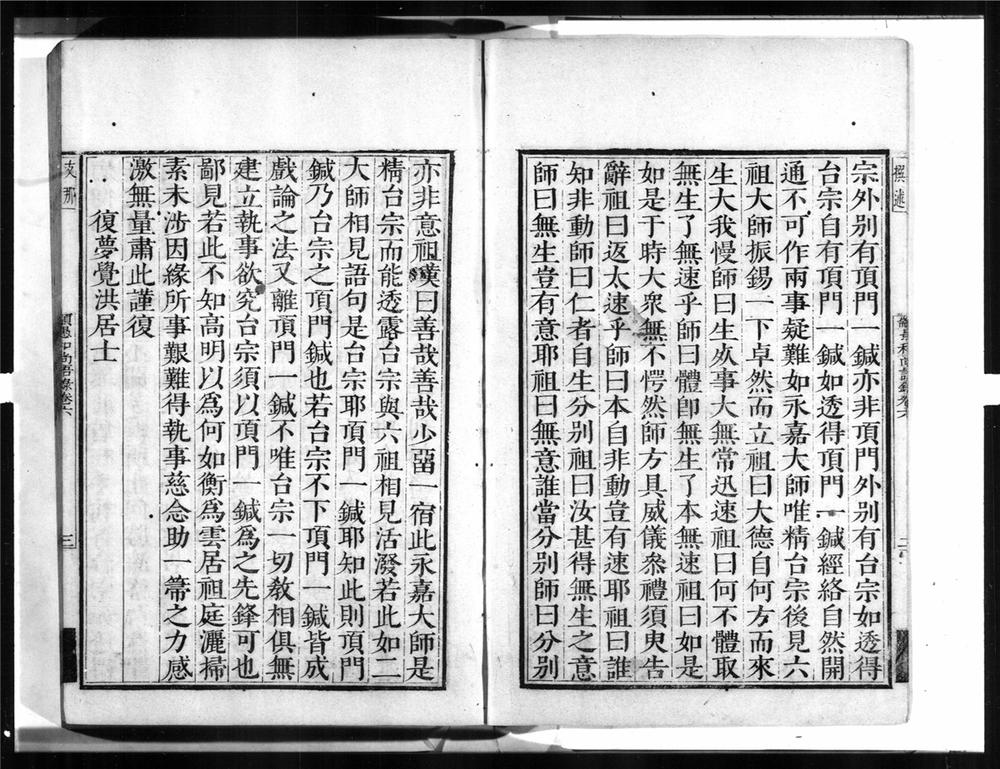 宗外別有頂門一鍼亦非頂門外別有台宗如透得
台宗自有頂門一鍼如透得頂門一鍼經絡自然開
通不可作兩事疑難如永嘉大師唯精台宗後見六
祖大師振錫一下卓然而立祖曰大德自何方而來
生大我慢師曰生死事大無常迅速祖曰何不體取
無生了無速乎師曰體卽無生了本無速祖曰如是
如是于時大衆無不愕然師方具威儀叅禮須臾告
辭祖曰返太速乎師曰本自非動豈有速耶祖曰誰
知非動師曰仁者自生分別祖曰汝甚得無生之意
師曰無生豈有意耶祖曰無意誰當分別師曰分別
亦非意祖嘆曰善哉善哉少畱一宿此永嘉大師是
精台宗而能透露台宗與六祖相見活潑若此如二
大師相見語句是台宗耶頂門一鍼耶知此則頂門
鍼乃台宗之頂門鍼也若台宗不下頂門一鍼皆成
戲論之法又離頂門一鍼不唯台宗一切教相俱無
建立執事欲究台宗須以頂門一鍼爲之先鋒可也
鄙見若此不知高明以爲何如衡爲雲居祖庭灑掃
素未涉因緣所事艱難得執事慈念助一箒之力感
激無量肅此謹復
復夢覺洪居士
撰述
語錄卷六
二
支那
語錄卷六
三